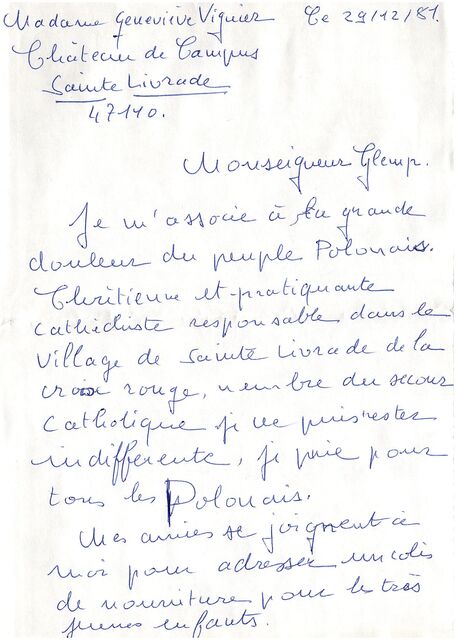 Madame Geneviève Viguier Le 29/12/81.
Château de Campus
Sainte Livrade
47110.
Monseigneur Glemp.
Je m'associe à la grande
douleur du peuple Polonais.
Chritienne et pratiquante
cathéchiste responsable dans le
village de Sainte Livrade de la
croix rouge, membre du secour
catholique je ne puis rester
indifférente, je prie pour
tous les Polonais.
Mes amies se joignent à
moi pour adresser un colis
de nourriture pour les très
jeunes enfants.